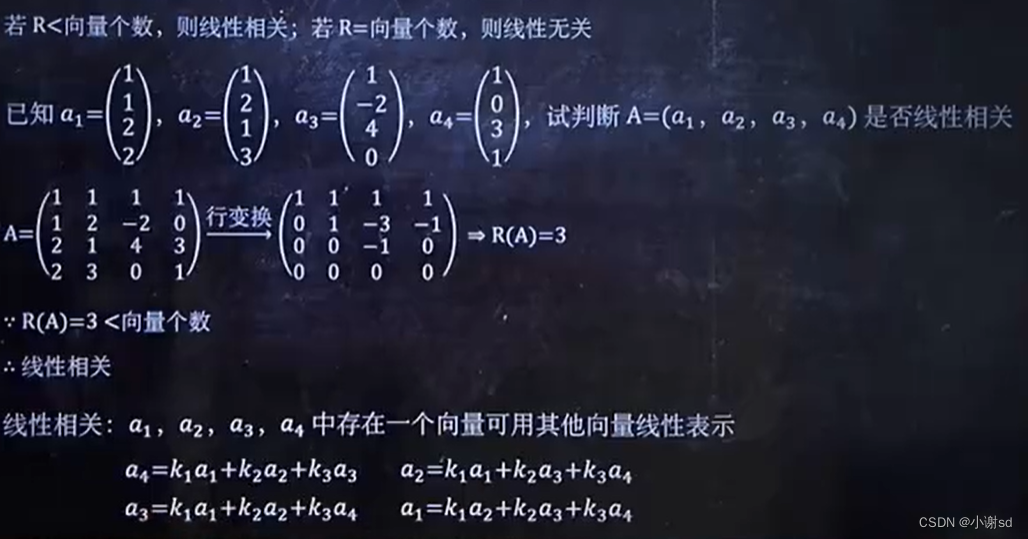 若 R<向量个数，则线性相关；若 R=向量个数，则线性无关
已知 a₁=(1 1 2 2)，a₂=(1 2 1 3)，a₃=(1 −2 4 0)，a₄=(1 0 3 1)，试判断 A=(a₁，a₂，a₃，a₄) 是否线性相关
A=(1 1 1 1
1 2 −2 0
2 1 4 3
2 3 0 1) 行变换 (1 1 1 1
0 1 −3 −1
0 0 −1 0
0 0 0 0) ⇒ R(A)=3
∵ R(A)=3 <向量个数
∴ 线性相关
线性相关：a₁，a₂，a₃，a₄ 中存在一个向量可用其他向量线性表示
a₄=k₁a₁+k₂a₂+k₃a₃ a₂=k₁a₁+k₂a₃+k₃a₄
a₃=k₁a₁+k₂a₂+k₃a₄ a₁=k₁a₂+k₂a₃+k₃a₄
CSDN @小谢sd